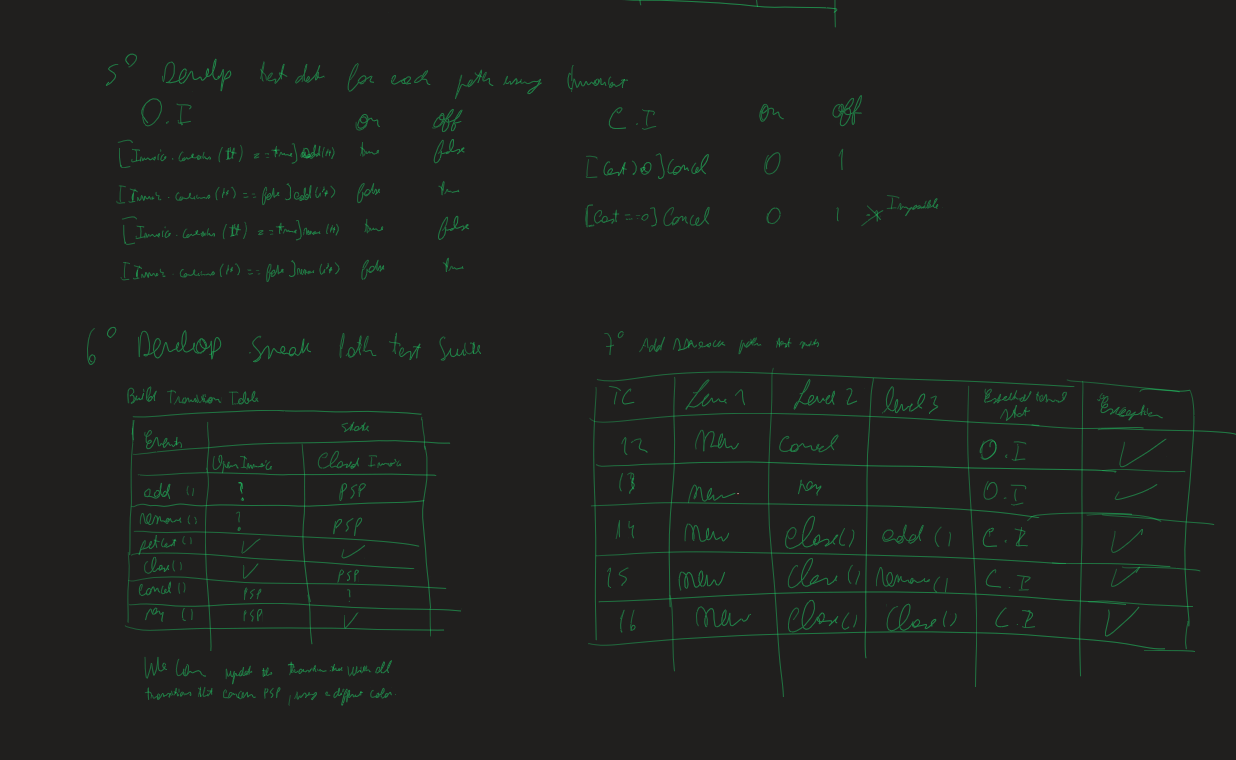 5° Develop test data for each path using invariant
O.I on off
[Invoice.contains(it) == true] add(it) true false
[Invoice.contains(it) == false] add(it) false true
[Invoice.contains(it) == true] remove(it) true false
[Invoice.contains(it) == false] remove(it) false true
C.I on off
[Cost > 0] Cancel 0 1
[Cost == 0] Cancel 0 1 Impossible
6° Develop Sneak Path test Suite
Build Transition Table
Events State
Open Invoice Closed Invoice
add () ? PSP
remove () ? PSP
getCost () ✓ ✓
Close () ✓ PSP
Cancel () PSP ?
pay () PSP ✓
We can update the transition tree with all
transitions that concern PSP, using a different color.
7° Add sneak path test suite
TC Level 1 Level 2 level 3 Expected terminal state Exception
12 New Cancel O.I ✓
13 New pay O.I ✓
14 New Close() add () C.I ✓
15 New Close () remove () C.I ✓
16 New Close() Close() C.I ✓